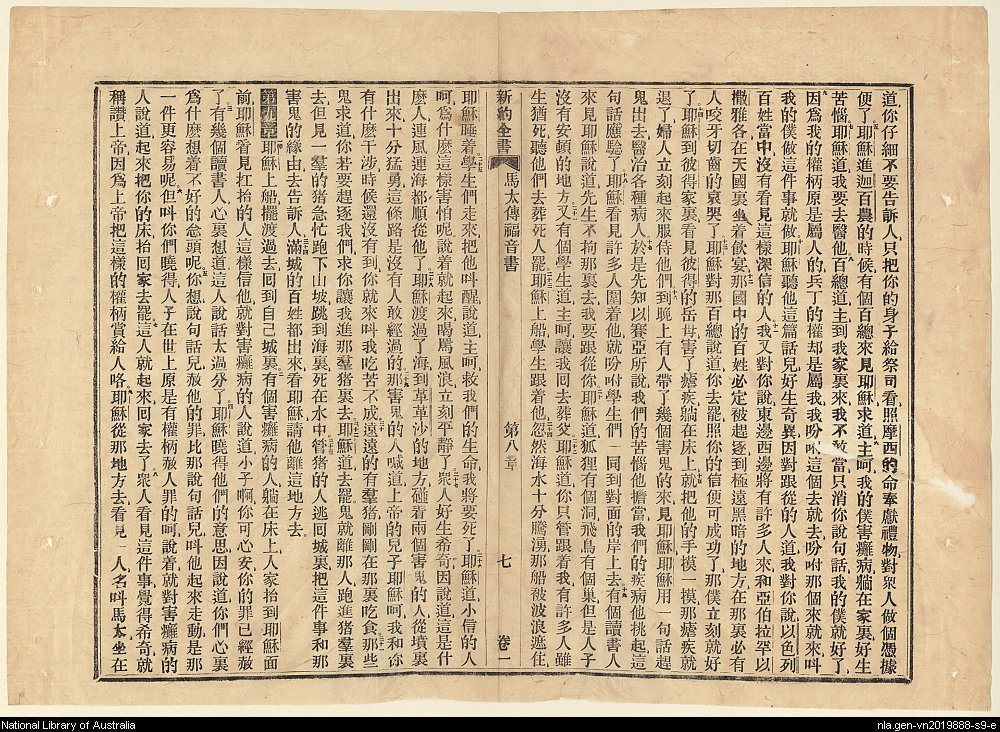 道你仔細不要告訴人只把你的身子給祭司看照摩西的命奉獻禮物對衆人做個憑據
便了耶穌進迦百農的時候有個百總來見耶穌求道主呵我的僕害癱病躺在家裏好生
苦惱耶穌道我要去醫他百總道主到我家裏來我不敢當只消你說句話我的僕就好了
因爲我的權柄原是屬人的兵丁的權却是屬我我吩咐這個去就去吩咐那個來就來呌
我的僕做這件事就做耶穌聽他這篇話兒好生奇異因對跟從的人道我對你說以色列
百姓當中沒有看見這樣深信的人我又對你說東邊西邊將有許多人來和亞伯拉罕以
撒雅各在天國裏坐着飲宴那國中的百姓必定被趕逐到極遠黑暗的地方在那裏必有
人咬牙切齒的哀哭了耶穌對那百總說道你去罷照你的信便可成功了那僕立刻就好
了耶穌到彼得家裏看見彼得的岳母害了瘧疾躺在床上就把他的手摸一摸那瘧疾就
退了婦人立刻起來服侍他們到晚上有人帶了幾個害鬼的來見耶穌耶穌用一句話趕
鬼出去醫治各種病人於是先知以賽亞所說我們的苦惱他擔當我們的疾病他挑起這
句話應驗了耶穌看見許多人圍着他就吩咐學生們一同到對面的岸上去有個讀書人
來見耶穌說道先生不拘那裏去我要跟從你耶穌道狐狸有個洞飛鳥有個巢但是人子
沒有安頓的地方又有個學生道主呵讓我回去葬父耶穌道你只管跟着我有許多人雖
生猶死聽他們去葬死人罷耶穌上船學生跟着他忽然海水十分騰湧那船被波浪遮住
新約全書 馬太傳福音書 第八章 七 卷一
耶穌睡着學生們走來把他呌醒說道主呵救我們的生命我將要死了耶穌道小信的人
呵爲什麽這樣害怕呢說着就起來喝罵風浪立刻平靜了衆人好生希奇因說道這是什
麽人連風連海都順從他了耶穌渡過了海到革革沙的地方碰着兩個害鬼的人從墳裏
出來十分猛勇這條路是沒有人敢經過的那害鬼的人喊道上帝的兒子耶穌呵我和你
有什麽干涉時候還沒有到你就來呌我吃苦不成遠遠的有羣豬剛剛在那裏吃食那些
鬼求道你若要趕逐我們求你讓我進那羣豬裏去耶穌道去罷鬼就離那人跑進豬羣裏
去但見一羣的豬急忙跑下山坡跳到海裏死在水中管豬的人逃回城裏把這件事和那
害鬼的緣由去告訴人滿城的百姓都出來看耶穌請他離這地方去
第九章耶穌上船擺渡過去回到自己城裏有個害癱病的人躺在床上人家抬到耶穌面
前耶穌看見扛抬的人這樣信他就對害癱病的人說道小子啊你可心安你的罪已經赦
了有幾個讀書人心裏想道這人說話太過分了耶穌曉得他們的意思因說道你們心裏
爲什麽想着不好的念頭呢你想說句話兒赦他的罪比那說句話兒呌他起來走動是那
一件更容易呢但呌你們曉得人子在世上原是有權柄赦人罪的呵說着就對害癱病的
人說道起來把你的床抬回家去罷這人就起來回家去了衆人看見這件事覺得希奇就
稱讚上帝因爲上帝把這樣的權柄賞給人咯耶穌從那地方去看見一人名呌馬太坐在
National Library of Australia
nla.gen-vn2019888-s9-e